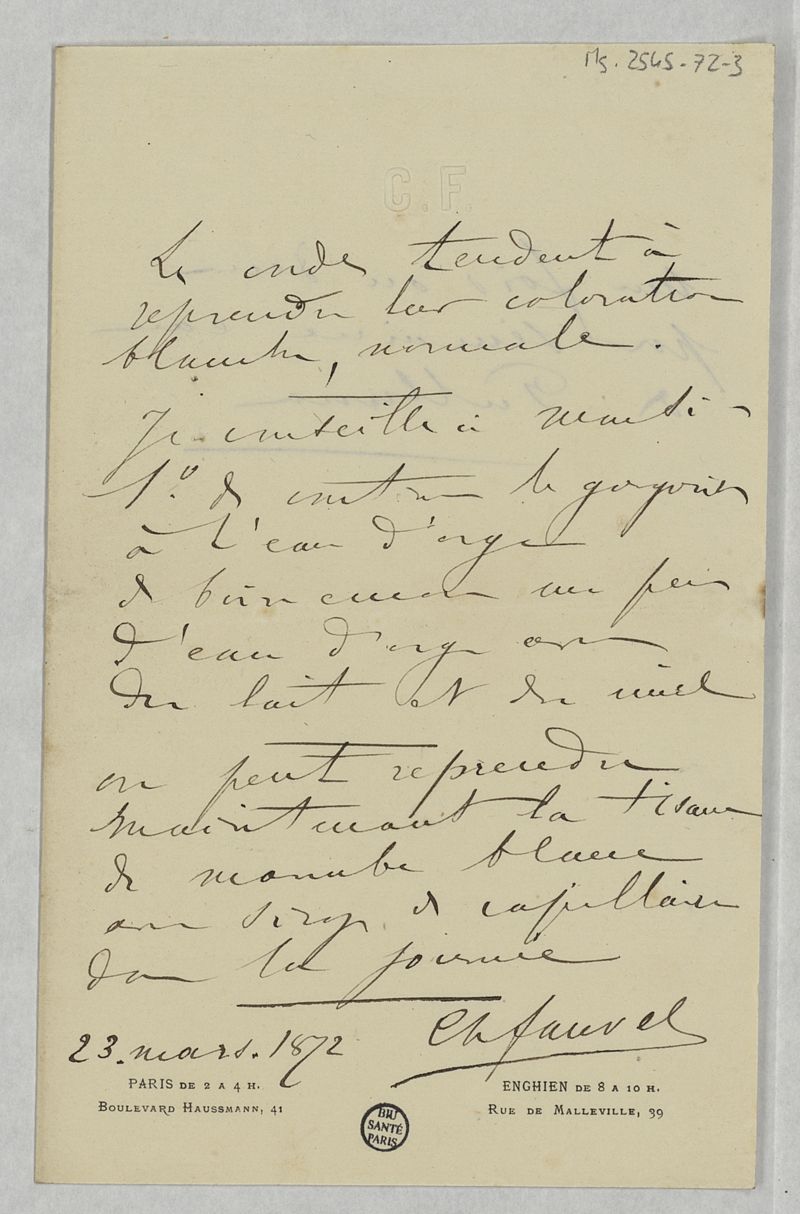 Ms. 2545-72-3
C.F.
Les cordes tendent à
reprendre leur coloration
blanche, normale.
Je conseille à
1º. de continuer le gargarisme
à l'eau d'orge
de boire encore un peu
d'eau d'orge avec
du lait et du miel
on peut reprendre
maintenant la tisane
de marrube blanc
avec sirop de capillaire
dans la journée
23. mars. 1872
Ch fauvel
PARIS DE 2 A 4 H.
BOULEVARD HAUSSMANN, 41
BIU
SANTÉ
PARIS
ENGHIEN DE 8 A 10 H.
RUE DE MALLEVILLE, 39